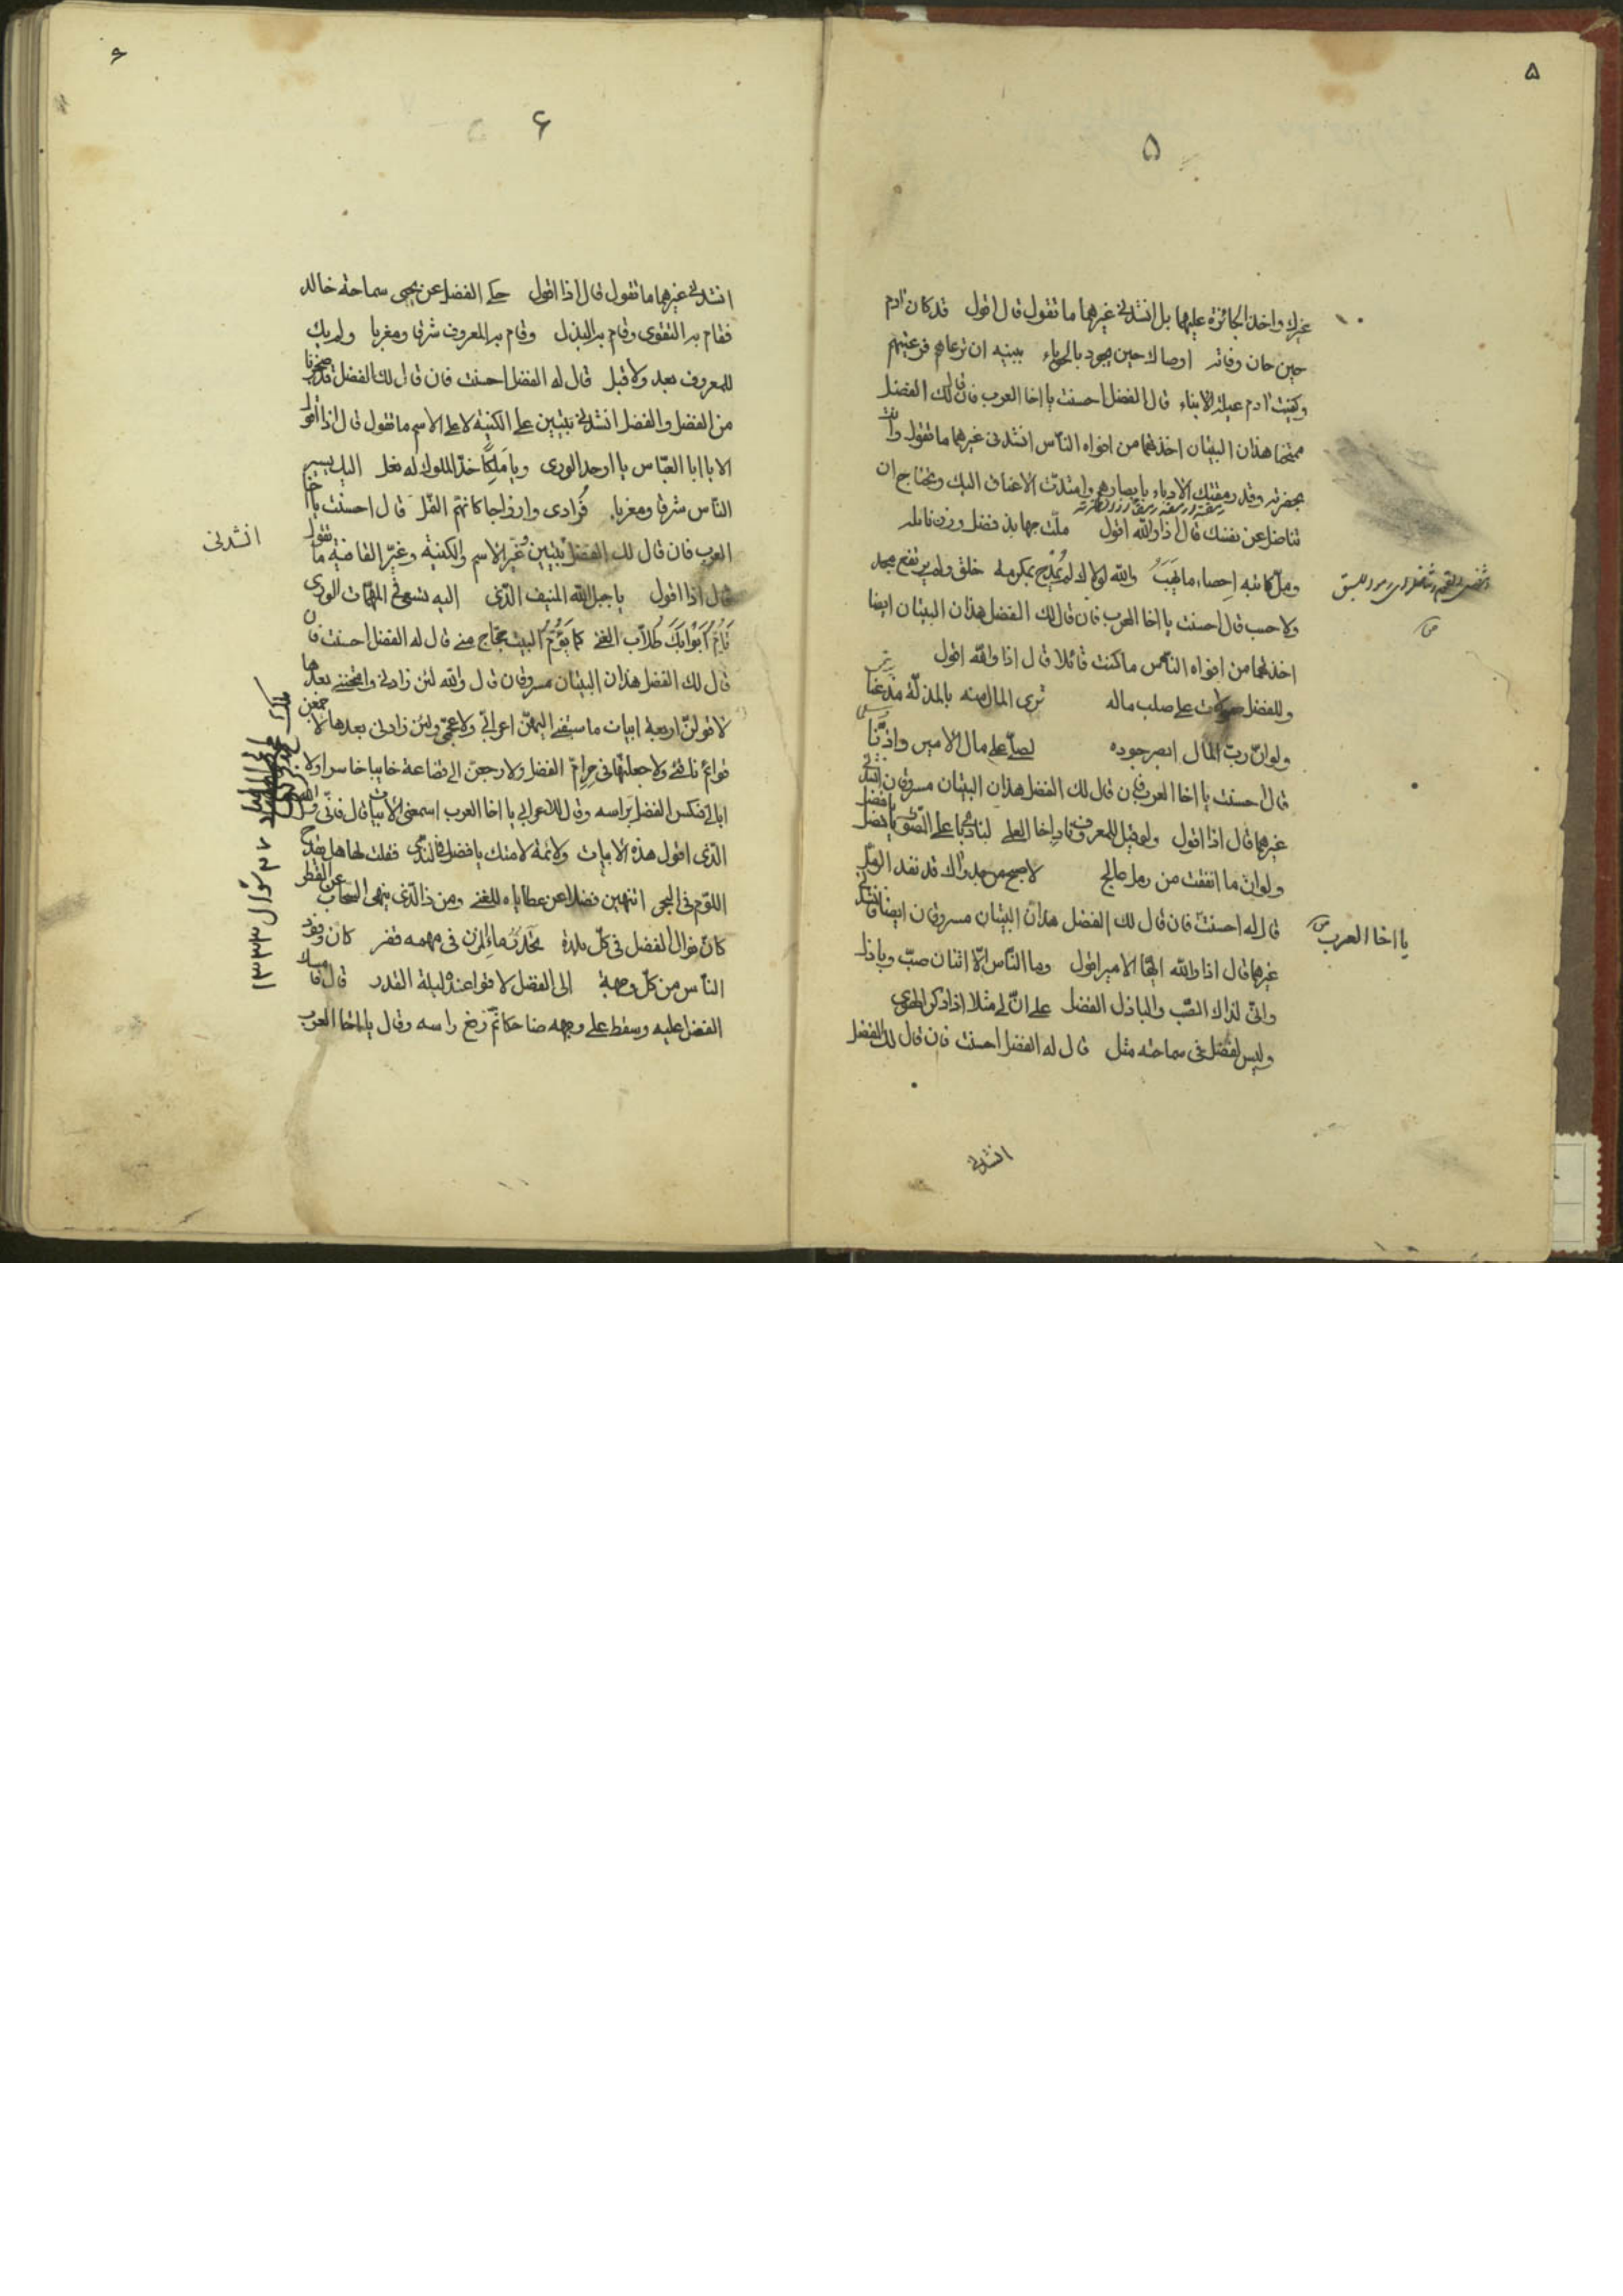 ۵
۵
غيرك واخذ الجائزة عليها بل انشدنى غيرهما ما تقول قال اقول قد كان آدم
حين حان وفاته اوصاك حين يجود بالحوباء ببنيه ان ترعاهم فرعيتهم
وكفيت آدم عيلة الابناء قال الفضل احسنت يا اخا العرب فان قال لك الفضل
ممتحنا هذان البيتان اخذتهما من افواه النّاس انشدنى غيرهما ما تقول وانت
بحضرته وقد رمقتك الادباء بابصارهم وامتدّت الاعناق اليك وتحتاج ان
تناضل عن نفسك قال اذا والله اقول ملّت جهابذ فضل وزن نائله
وملّ كاتبه احصاء ما يَهَبُ والله لولاك لم يُمدح بمكرمة خلق ولم يرتفع مجد
ولا حسب قال احسنت يا اخا العرب فان قال لك الفضل هذان البيتان ايضا
اخذتهما من افواه النّاس ما كنت قائلا قال اذا والله اقول
وللفضل صولات على صلب ماله ترى المال منه بالمذلّة مذعنا
ولو انّ ربّ المال ابصر جوده لصلّى على مال الامير واذّنا
قال احسنت يا اخا العرب فان قال لك الفضل هذان البيتان مسروقان انشدنى
غيرهما قال اذا اقول ولو قيل للمعروف ناد اخا العلى لنادى باعلى الصّوت يا فضل يا فضل
ولو انّ ما انفقت من رمل عالج لاصبح من جدواك قد نفد الرمل
قال له احسنت فان قال لك الفضل هذان البيتان مسروقان ايضا انشدنى
يا اخا العرب
غيرهما قال اذا والله ايّها الامير اقول وما النّاس الّا اثنان صبّ وباذل
وانّى لذاك الصّب والباذل الفضل على انّ لى مثلا اذا ذكر الهوى
وليس لفضل فى سماحته مثل قال له الفضل احسنت فان قال لك الفضل
انشدنى
۶
۶
انشدنى غيرهما ما تقول قال اذا اقول حكى الفضل عن يحيى سماحة خالد
فقام به التقوى وقام به البذل وقام به المعروف شرقا ومغربا ولم يك
للمعروف بعد ولا قبل قال له الفضل احسنت فان قال لك الفضل قد ضجرنا
من الفضل والفضل انشدنى بيتين على الكنية لا على الاسم ما تقول قال اذا اقول
الا يا ابا العبّاس يا اوحد الورى ويا مَلِكًا خدّ الملوك له نعل اليك يسير
النّاس شرقا ومغربا فُرادى وازواجا كانّهم النّمل قال احسنت يا اخا
العرب فان قال لك الفضل بيتين غير الاسم والكنية وغيّر القافية ما تقول
انشدنى
قال اذا اقول يا جبل الله المنيف الّذى اليه تسعى فى المهمّات الورى
تَأُمُّ اَبْوابَكَ طُلّاب الغنى كما يَؤُمُّ البيت حجّاج منى قال له الفضل احسنت فان
قال لك الفضل هذان البيتان مسروقان قال والله لئن زادنى وامتحننى بعدها
لاقولنّ اربعة ابيات ما سبقنى اليهنّ اعرابىّ ولا عجمىّ ولئن زادنى بعدها لاجمعن
قوائم ناقتى ولاجعلنّها فى حِرِامّ الفضل ولارجعن الى قضاعة خايبا خاسرا ولا
ابالى فنكس الفضل براسه وقال للاعرابى يا اخا العرب اسمعنى الابيات قال
الّذى اقول هذه الابيات ولائمة لامتك يا فضل فى النّدى فقلت لها هل يقدح
اللوم فى البحر اتنهين فضلا عن عطاياه للغنى ومن ذا الّذى ينهى السّحاب عن القطر
كانّ نوال الفضل فى كلّ بلدة تحدّر ماء المزن فى مهمه قفر كانّ وفود
النّاس من كلّ وجهة الى الفضل لاقوا عنده ليلة القدر قال فامسك
الفضل عليه وسقط على وجهه ضاحكا ثمّ رفع راسه وقال يا اخا العرب
شوّال ۱۳۳۳